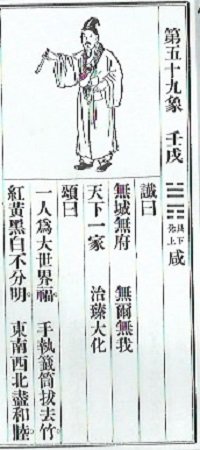 第五十九象 壬戌 ䷞ 艮下兌上 咸
讖曰
無城無府 無爾無我
天下一家 治臻大化
頌曰
一人為大世界福。 手執籤筒拔去竹。
紅黃黑白不分明 東南西北盡和睦。